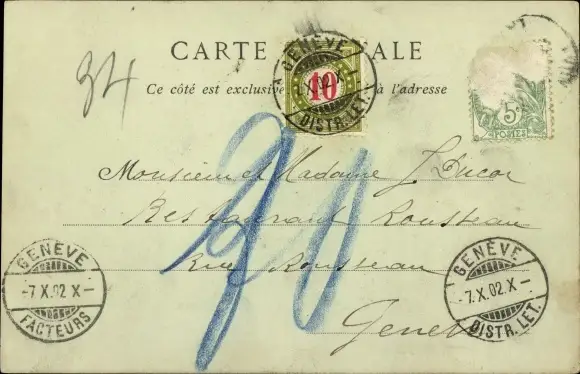 CARTE ALE
Ce côté est exclusive à l'adresse
34
GENÈVE
10
DISTR. LET.
5
POSTES
Monsieur et Madame J. Ducor
Restaurant Rousseau
Rue Rousseau
Genève
GENÈVE
-7.X.02 X-
FACTEURS
GENÈVE
-7.X.02 X-
DISTR. LET.